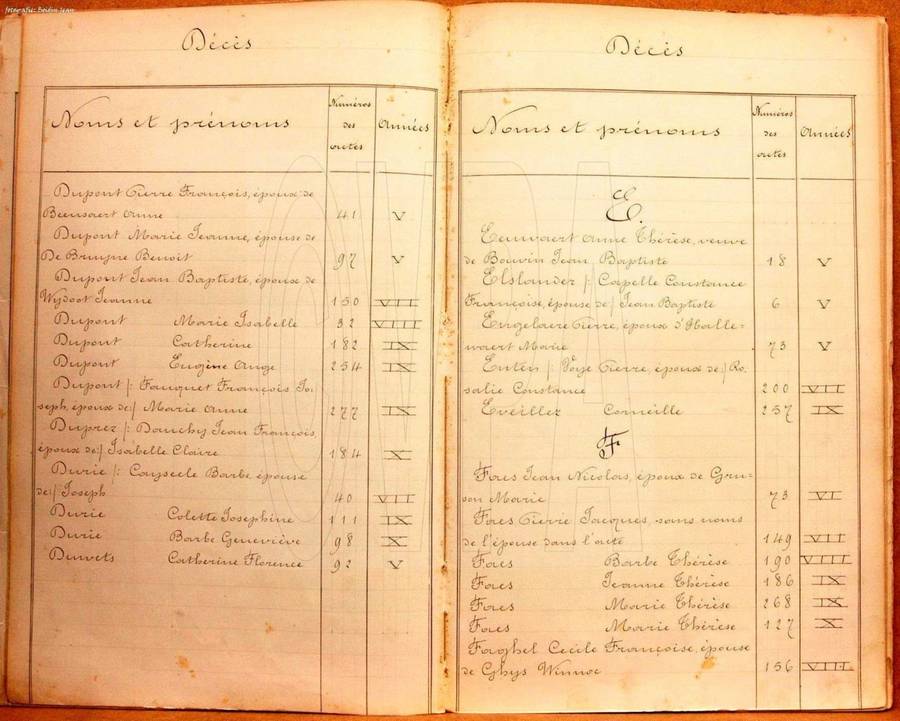 fotografie: Boidin Jean
Décès
Noms et prénoms
Numéros
des
actes
Années
Dupont Pierre François, époux de
Beensaert Anne 41 V
Dupont Marie Jeanne, épouse de
De Bruyne Benoit 97 V
Dupont Jean Baptiste, époux de
Wydoot Jeanne 150 VII
Dupont Marie Isabelle 32 VIII
Dupont Catherine 182 IX
Dupont Eugène Ange 254 IX
Dupont /: Fauquet François Jo-
seph, époux de:/ Marie Anne 277 IX
Duprez /: Dauchy Jean François,
époux de:/ Isabelle Claire 184 X
Durie /: Cayseele Barbe épouse
de:/ Joseph 40 VII
Durie Colette Josephine 111 IX
Durie Barbe Geneviève 98 X
Duivets Catherine Florence 92 V
Décès
Noms et prénoms
Numéros
des
actes
Années
E.
Eeuwaert Anne Thérèse, veuve
de Bouvin Jean Baptiste 18 V
Elslander /: Capelle Constance
Françoise, épouse de:/ Jean Baptiste 6 V
Engelaere Pierre, époux d'Halle-
waert Marie 73 V
Entin /: Voye Pierre, époux de:/ Ro-
salie Constance 200 VII
Eveillez Corneille 257 IX
F
Faes Jean Nicolas, époux de Gru-
son Marie 73 VI
Faes Pierre Jacques, sans noms
de l'épouse dans l'acte 149 VII
Faes Barbe Thérèse 190 VIII
Faes Jeanne Thérèse 186 IX
Faes Marie Thérèse 268 IX
Faes Marie Thérèse 127 X
Faghel Cecile Françoise, épouse
de Ghys Winnoc 156 VIII